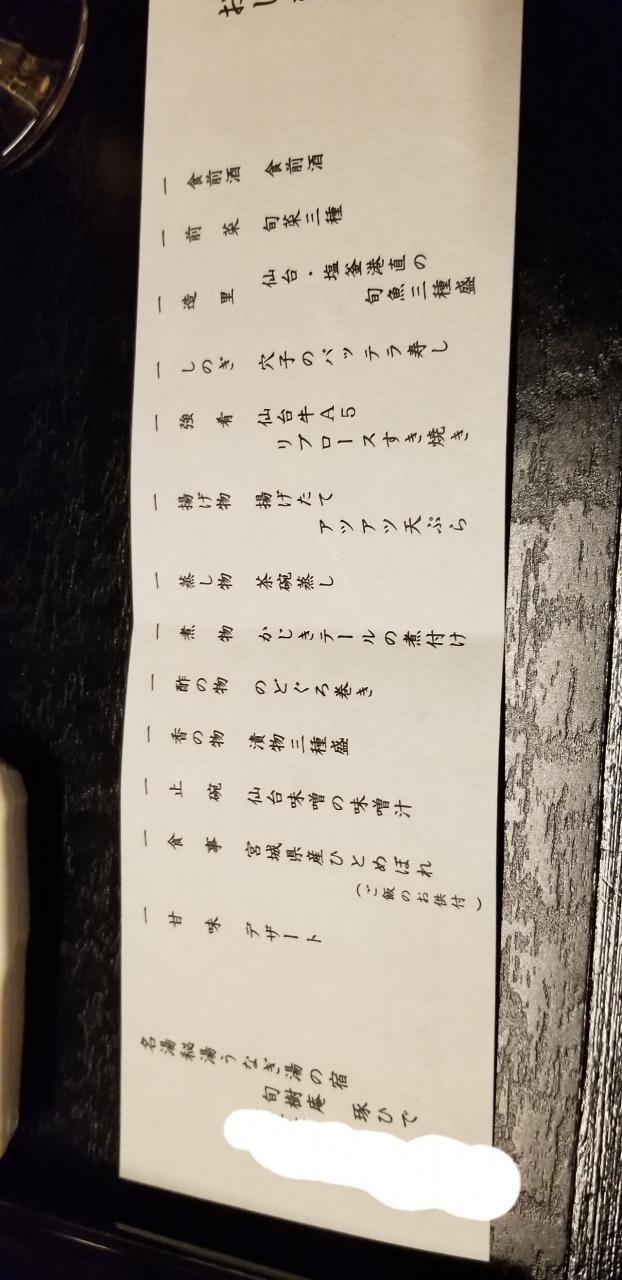 おし
一 食前酒 食前酒
一 前菜 旬菜三種
一 造里 仙台・塩釜港直の
旬魚三種盛
一 しのぎ 穴子のバッテラ寿し
一 強肴 仙台牛A5
リブロースすき焼き
一 揚げ物 揚げたて
アツアツ天ぷら
一 蒸し物 茶碗蒸し
一 煮物 かじきテールの煮付け
一 酢の物 のどぐろ巻き
一 香の物 漬物三種盛
一 止碗 仙台味噌の味噌汁
一 食事 宮城県産ひとめぼれ
（ご飯のお供付）
一 甘味 デザート
名湯秘湯うなぎ湯の宿
旬樹庵 琢ひで